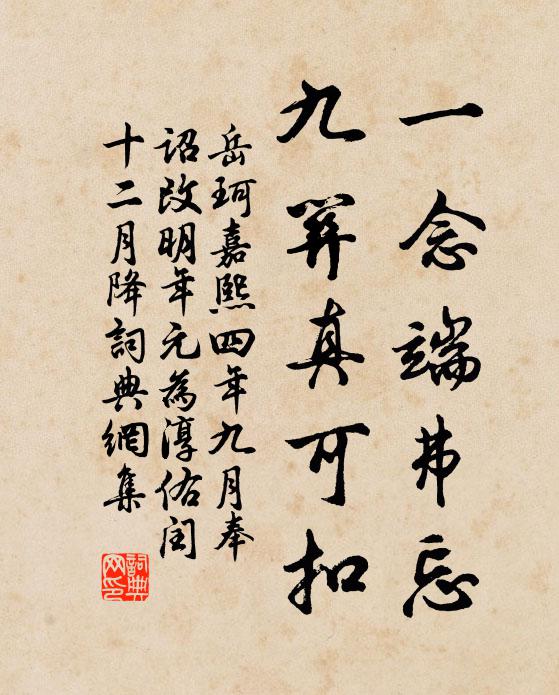 一念端弗忘
九真可扣
岳珂嘉熙四年九月奉
詔改明年元為淳佑闰
十二月降詞典網集
詞典
网印